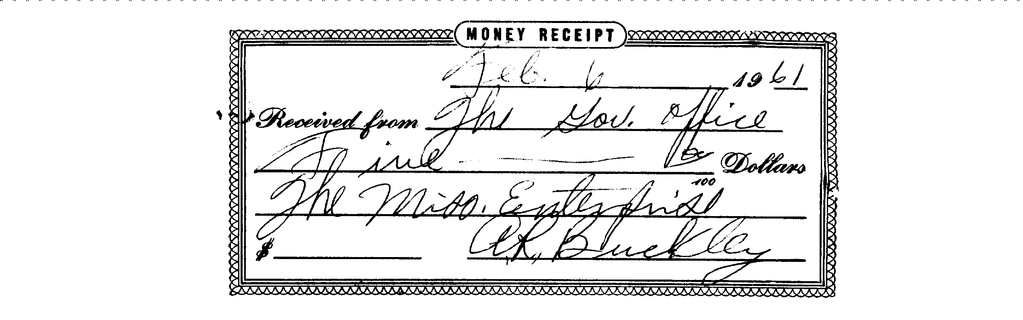 MONEY RECEIPT
Feb. 6 1961
Received from The Gov. Office
Five Dollars
100
The Miss. Enterprise
$ A.R. Buckley